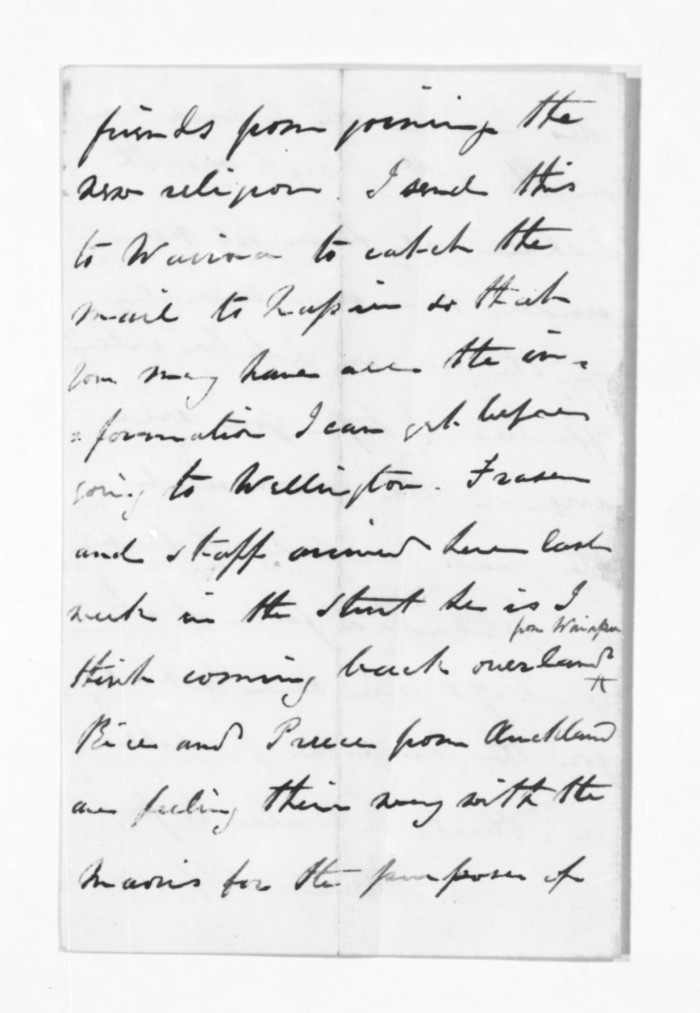 friends from joining the
new religion. I send this
to Wairoa to catch the
mail to Napier so that
you may have all the in=
=formation I can get before
going to Wellington. Fraser
and staff arrived here last
week in the Sturt he is I
from Waiapu
think coming back overland
Rice and Preece from Auckland
are feeling their way with the
Maoris for the purpose of